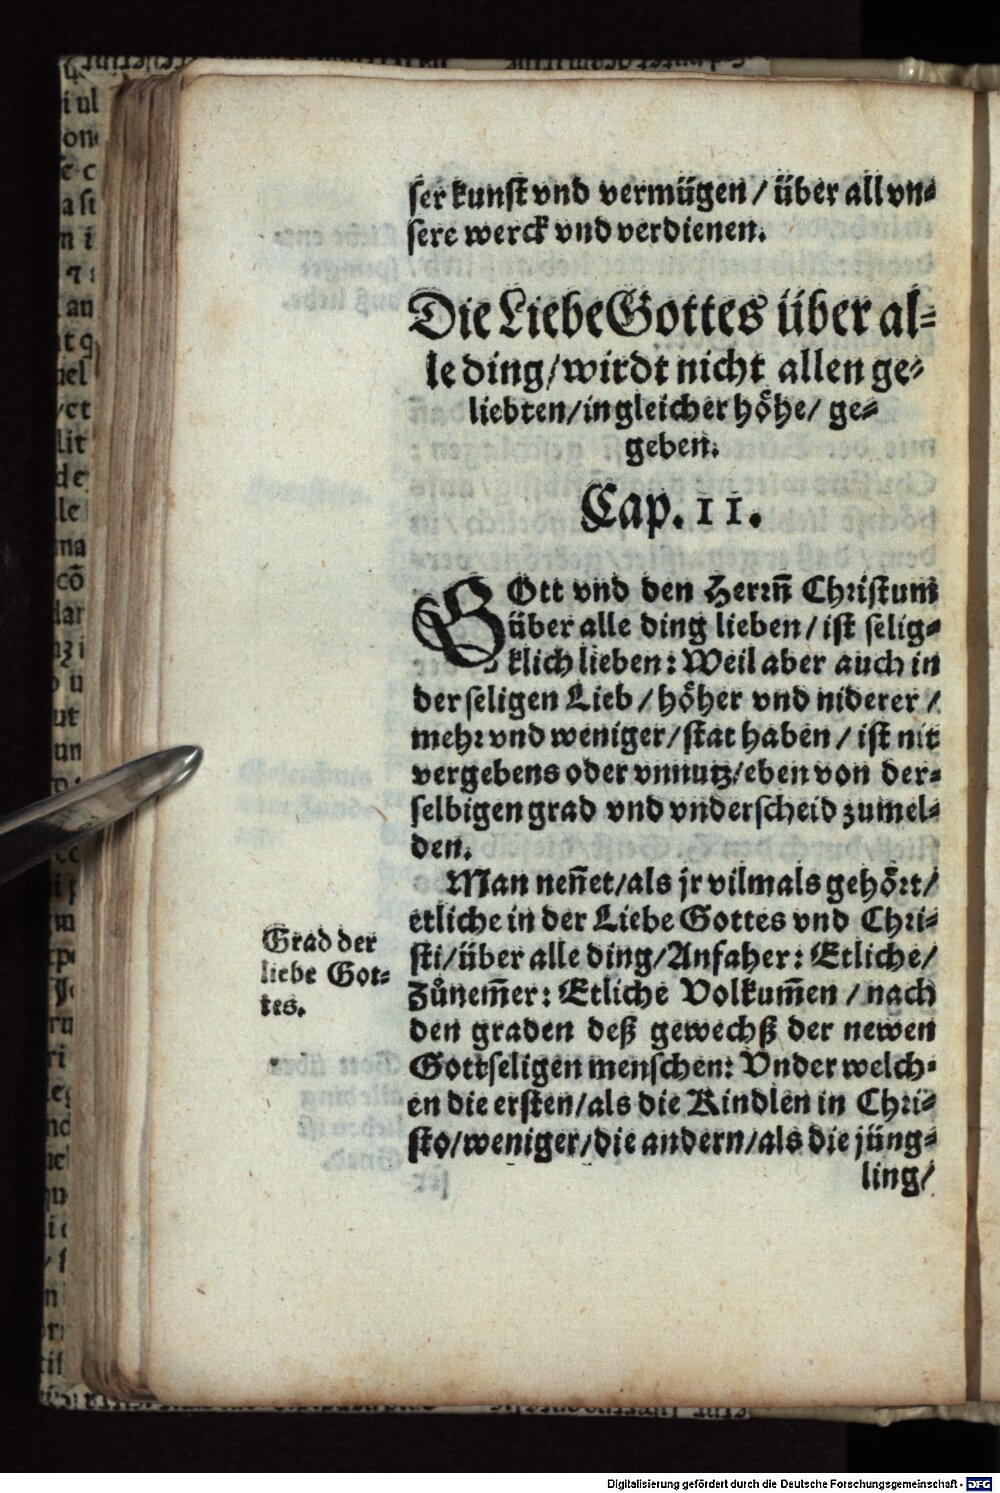 ser kunst vnd vermügen / über all vn⸗
sere werck vnd verdienen.
Die Liebe Gottes über al⸗
le ding / wirdt nicht allen ge⸗
liebten / in gleicher hoͤhe / ge⸗
geben.
Cap. 11.
GOtt vnd den Herrn̄ Christum
über alle ding lieben / ist selig⸗
klich lieben: Weil aber auch in
der seligen Lieb / hoͤher vnd niderer /
mehr vnd weniger / stat haben / ist nit
vergebens oder vnnutz / eben von der⸗
selbigen grad vnd vnderscheid zumel⸗
den.
Man neñet / als jr vilmals gehoͤrt /
etliche in der Liebe Gottes vnd Chri⸗
sti / über alle ding / Anfaher: Etliche /
Zůnem̃er: Etliche Volkum̃en / nach
den graden deß gewechß der newen
Gottseligen menschen: Vnder welch⸗
en die ersten / als die Kindlen in Chri⸗
sto / weniger / die andern / als die jüng⸗
ling /
Grad der
liebe Got⸗
tes.
Digitalisierung gefördert durch die Deutsche Forschungsgemeinschaft - DFG